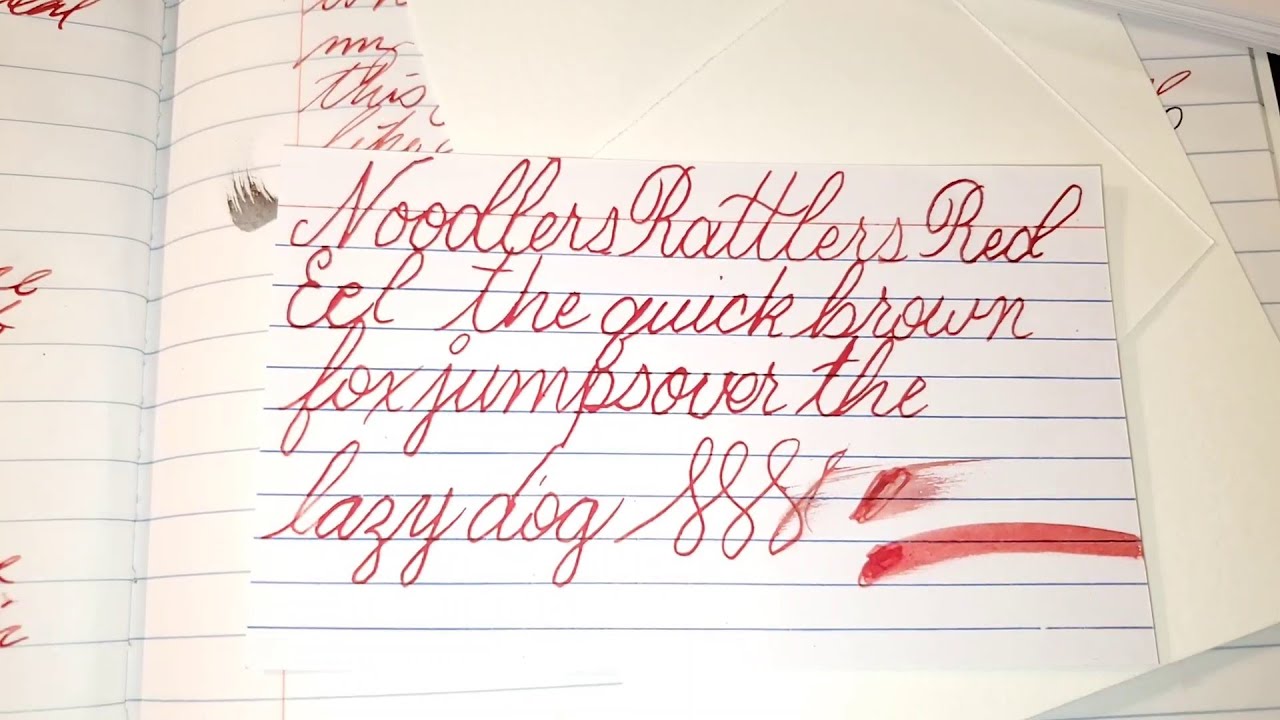 my
this
like
Noodlers Rattlers Red
Eel the quick brown
fox jumps over the
lazy dog